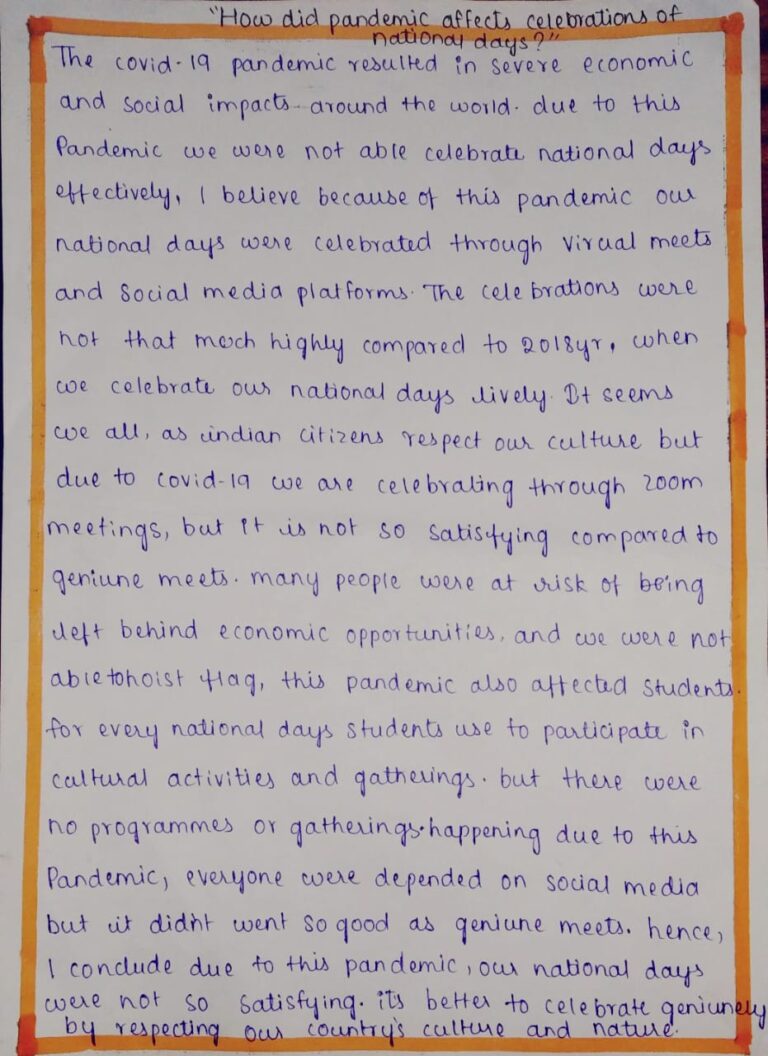 "How did pandemic affects celebrations of
national days?"
The covid-19 pandemic resulted in severe economic
and social impacts around the world. due to this
Pandemic we were not able celebrate national days
effectively, I believe because of this pandemic our
national days were celebrated through virual meets
and Social media platforms. The celebrations were
not that much highly compared to 2018yr, when
we celebrate our national days lively. It seems
we all, as indian citizens respect our culture but
due to covid-19 we are celebrating through zoom
meetings, but it is not so satisfying compared to
geniune meets. many people were at risk of being
left behind economic opportunities, and we were not
able to hoist flag, this pandemic also affected students.
for every national days students use to participate in
cultural activities and gatherings. but there were
no programmes or gatherings.happening due to this
Pandemic, everyone were depended on social media
but it didn't went so good as geniune meets. hence,
I conclude due to this pandemic, our national days
were not so satisfying. its better to celebrate geniunely
by respecting our country's culture and nature.